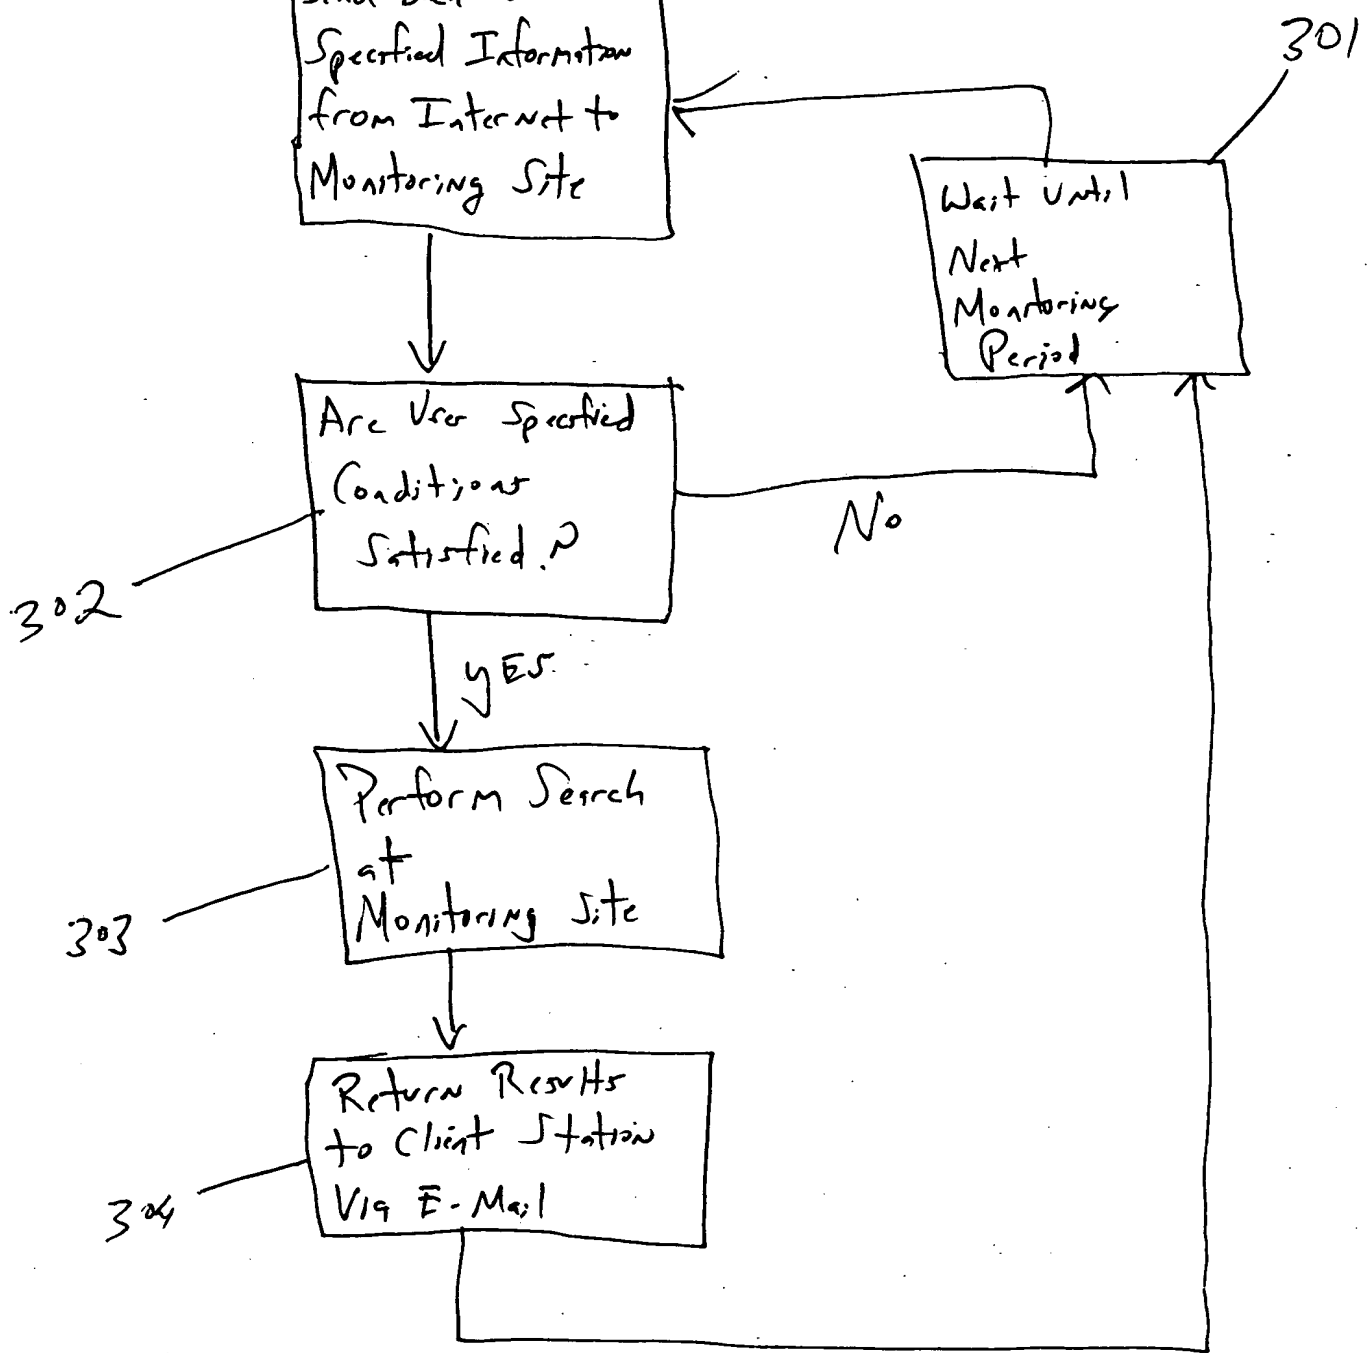 Specified Information
from Internet to
Monitoring Site
301
Wait Until
Next
Monitoring
Period
Are User Specified
Conditions
Satisfied?
No
302
YES
Perform Search
at
Monitoring Site
303
Return Results
to Client Station
Via E-Mail
304